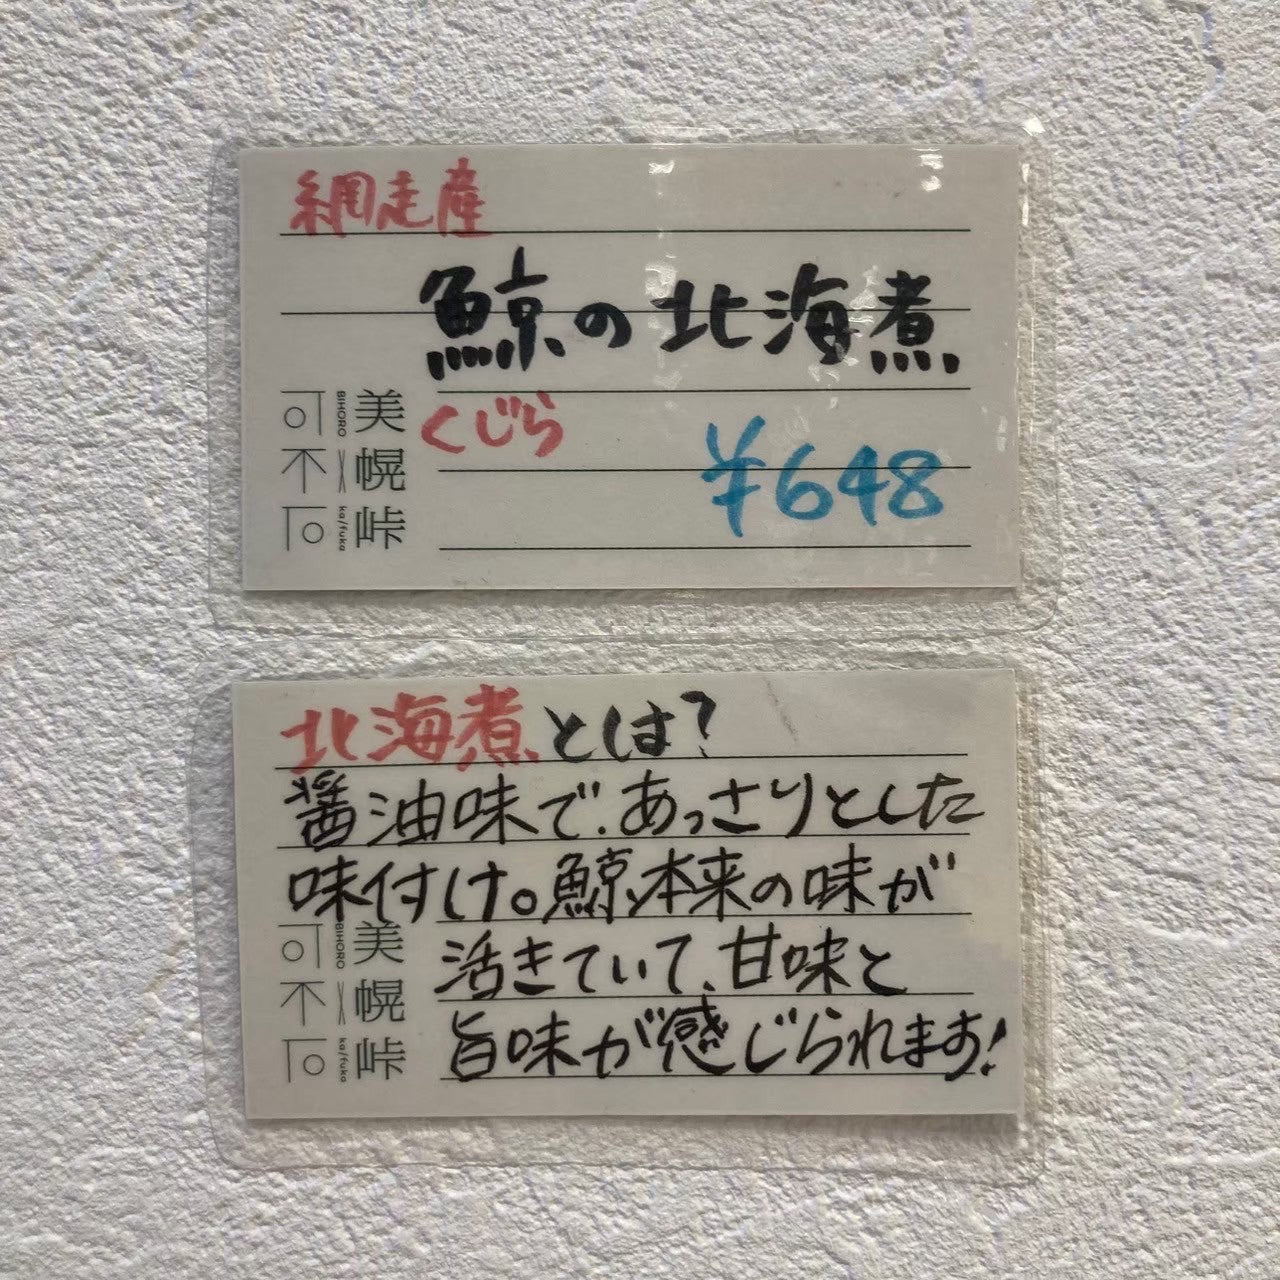 網走産
鯨の北海煮
くじら
¥648
美幌峠
BIHORO × ka/fuka
可不可
北海煮とは?
醤油味で、あっさりとした
味付け。鯨本来の味が
活きていて、甘味と
旨味が感じられます!
美幌峠
BIHORO × ka/fuka
可不可